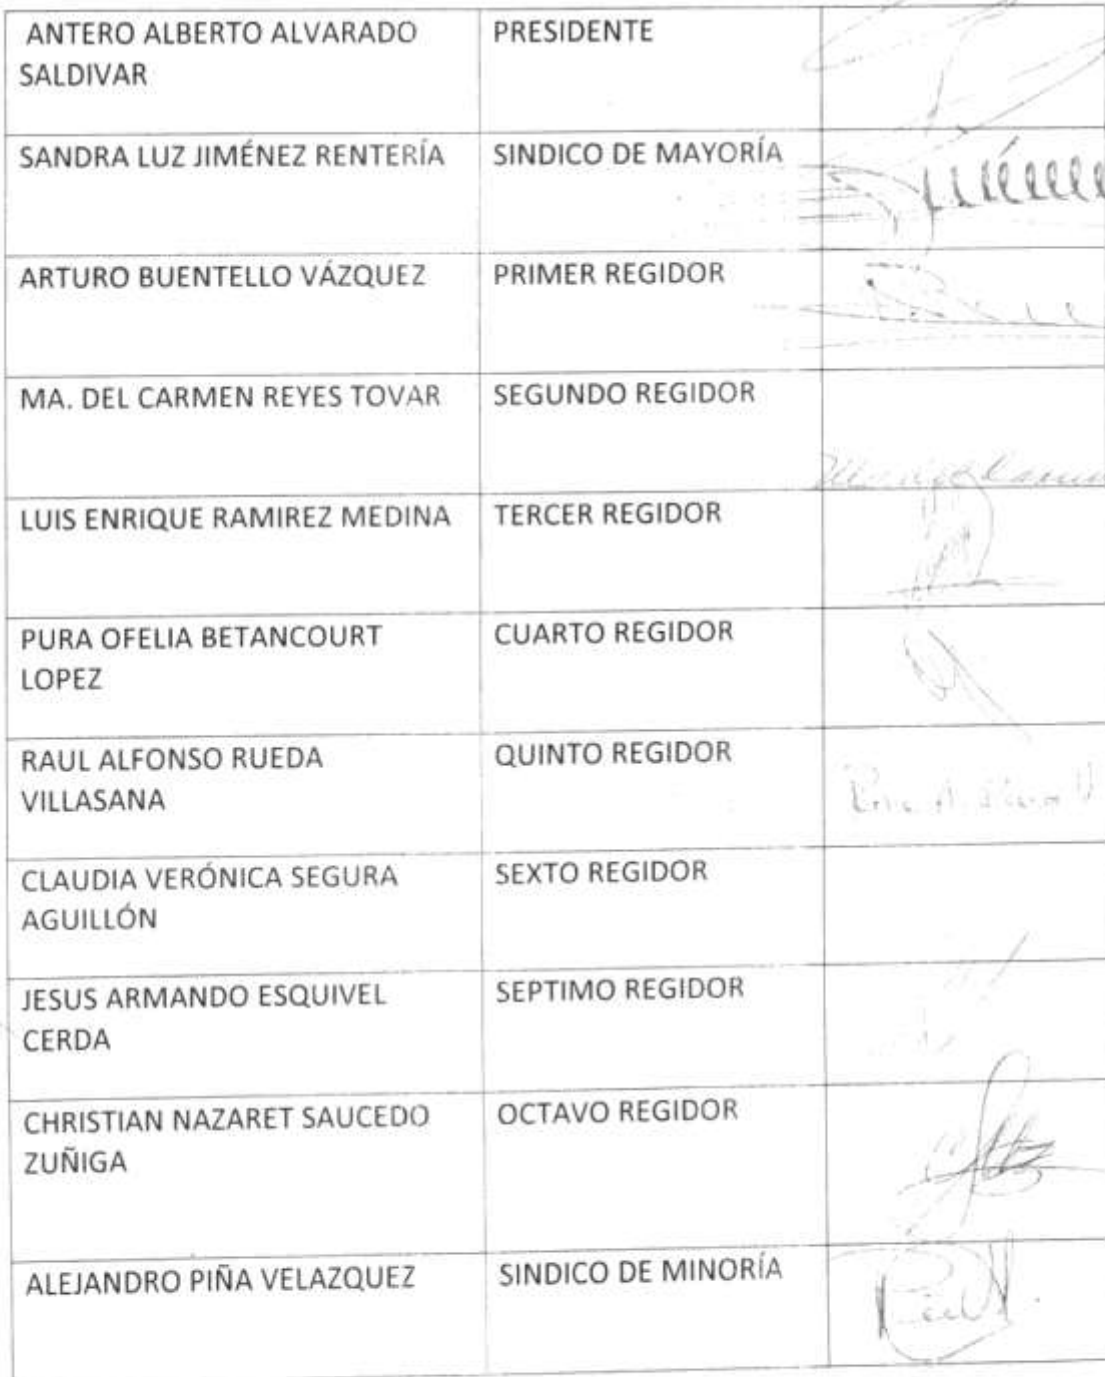 ANTERO ALBERTO ALVARADO
SALDIVAR
PRESIDENTE
SANDRA LUZ JIMÉNEZ RENTERÍA
SINDICO DE MAYORÍA
ARTURO BUENTELLO VÁZQUEZ
PRIMER REGIDOR
MA. DEL CARMEN REYES TOVAR
SEGUNDO REGIDOR
LUIS ENRIQUE RAMIREZ MEDINA
TERCER REGIDOR
PURA OFELIA BETANCOURT
LOPEZ
CUARTO REGIDOR
RAUL ALFONSO RUEDA
VILLASANA
QUINTO REGIDOR
CLAUDIA VERÓNICA SEGURA
AGUILLÓN
SEXTO REGIDOR
JESUS ARMANDO ESQUIVEL
CERDA
SEPTIMO REGIDOR
CHRISTIAN NAZARET SAUCEDO
ZUÑIGA
OCTAVO REGIDOR
ALEJANDRO PIÑA VELAZQUEZ
SINDICO DE MINORÍA